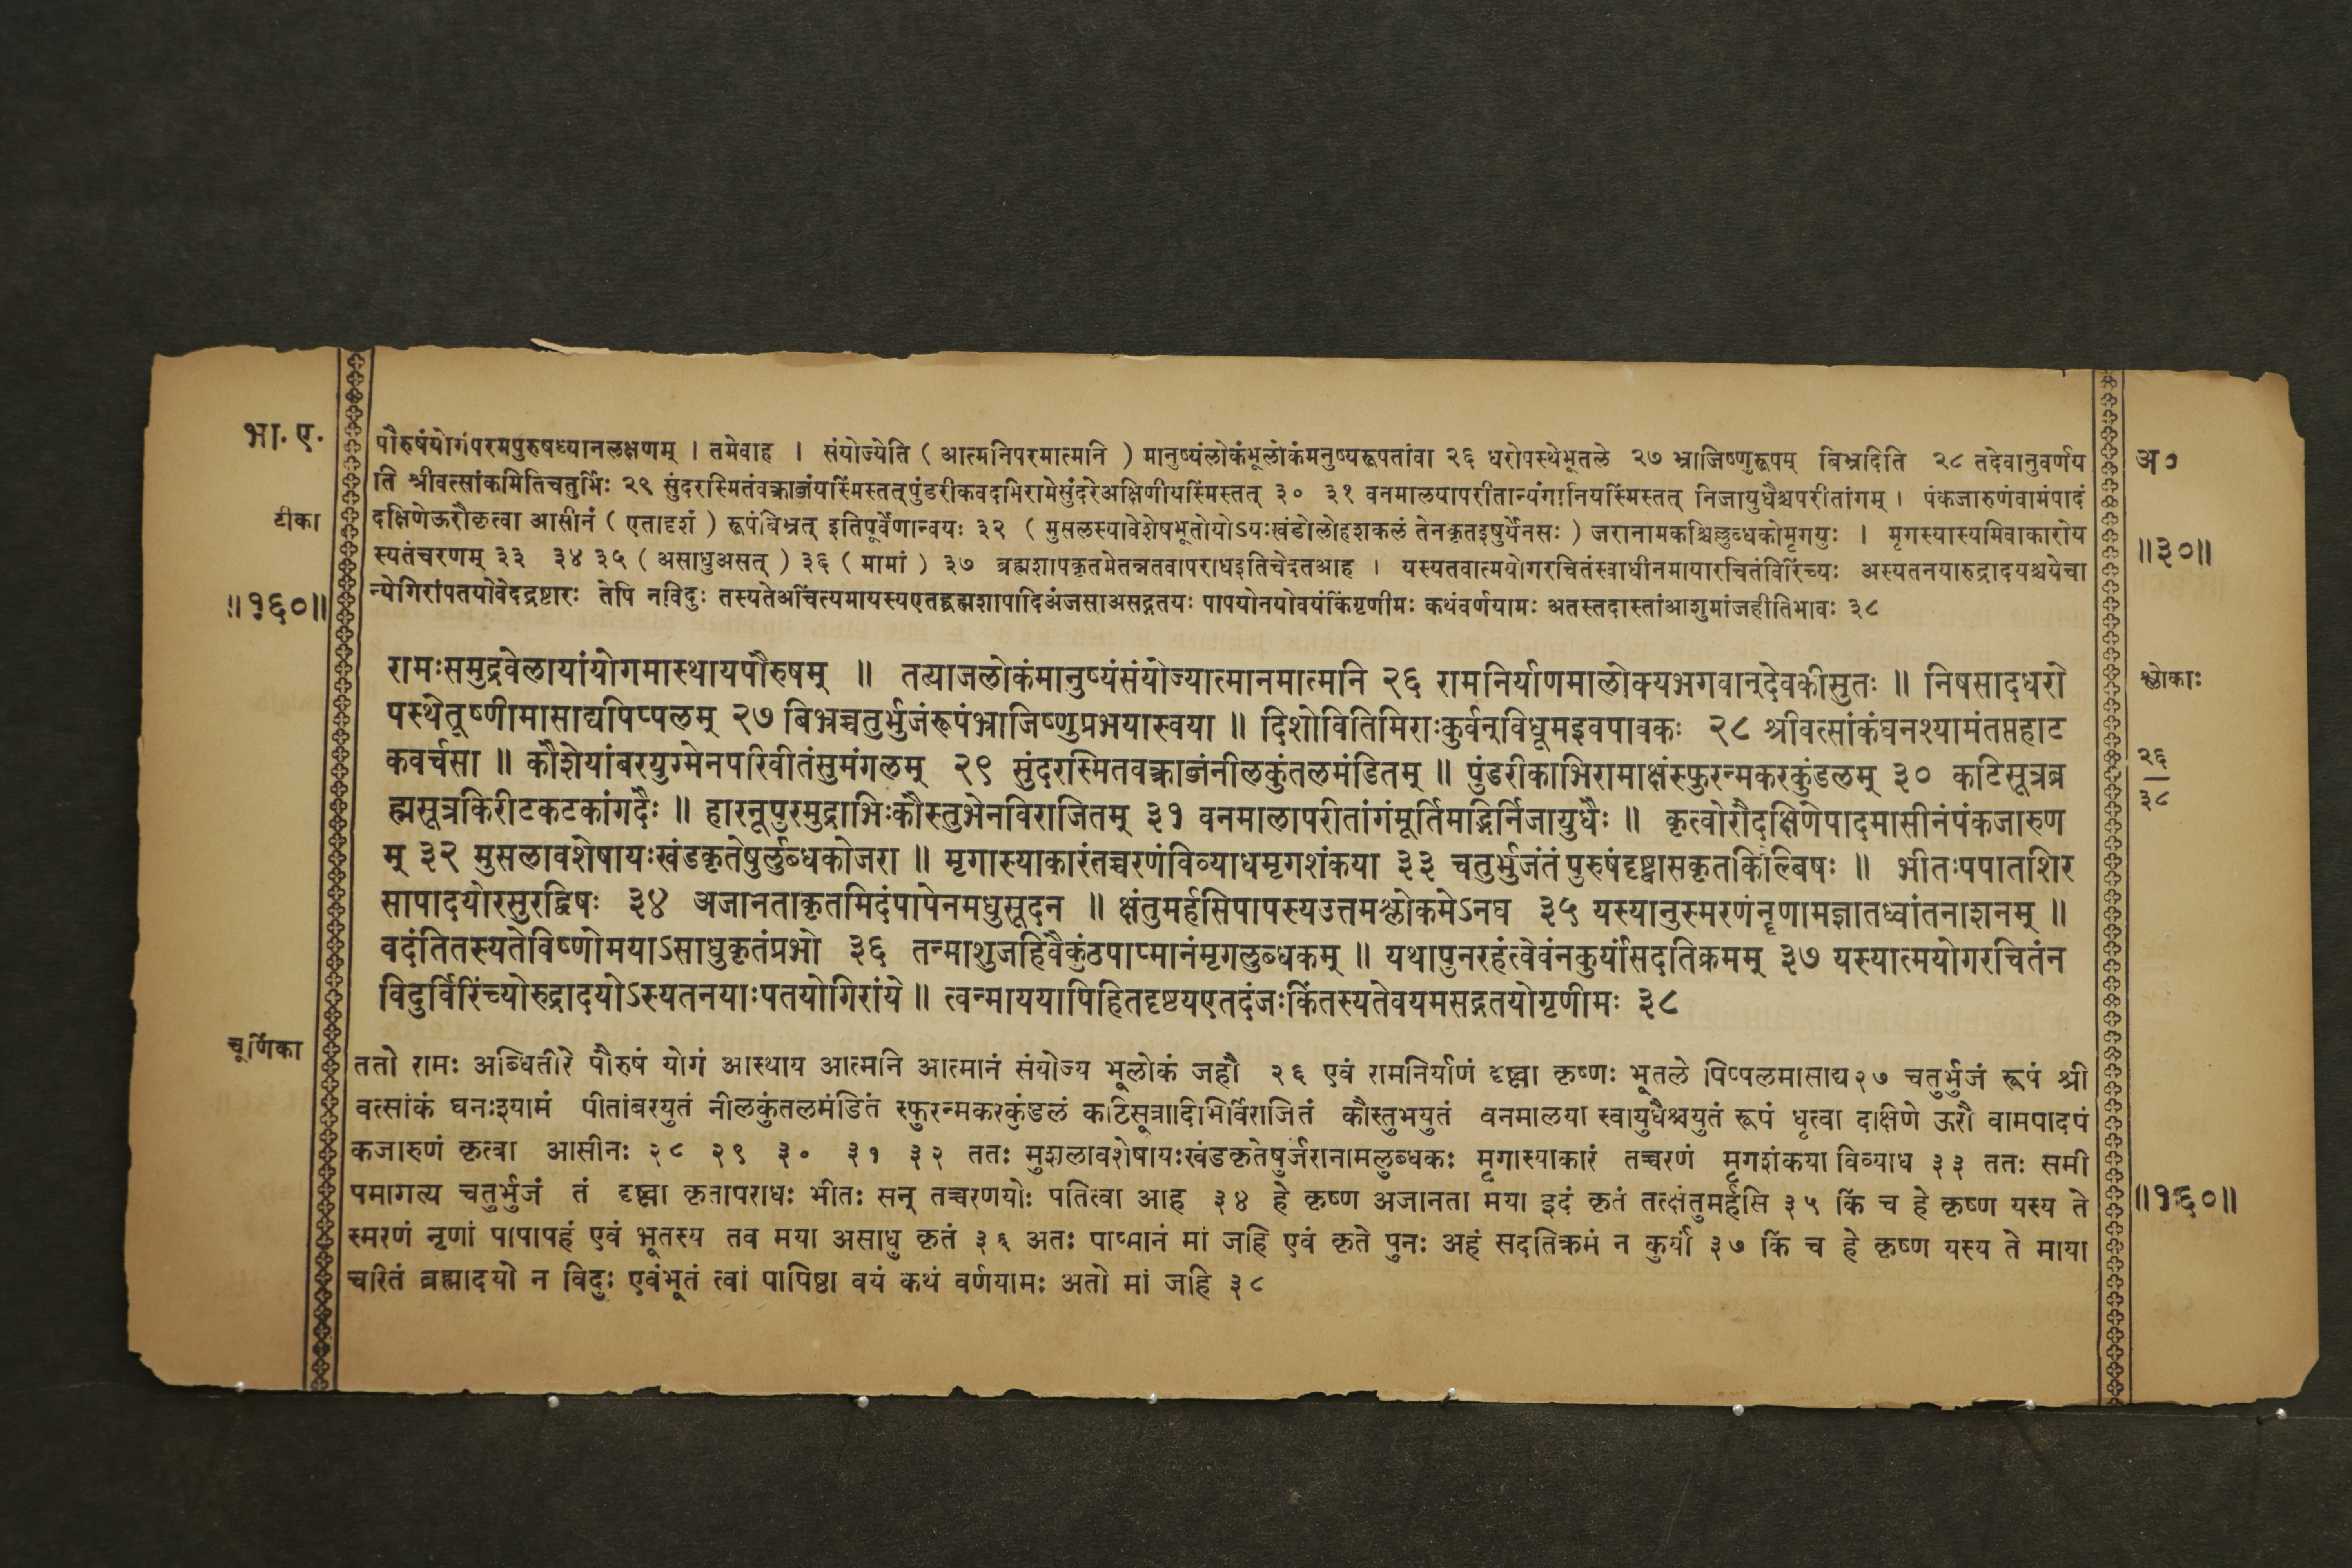 भा. ए.
टीका
॥१६०॥
पौरुषंयोगंपरमपुरुषध्यानलक्षणम् । तमेवाह । संयोज्येति ( आत्मनिपरमात्मनि ) मानुष्यंलोकंभूलोकंमनुष्यरूपतांवा २६ धरोपस्थेभूतले २७ भ्राजिष्णुरूपम् बिभ्रदिति २८ तदेवानुवर्णय
ति श्रीवत्सांकमितिचतुर्भिः २९ सुंदरस्मितवंक्त्राब्जंयस्मिंस्तत् पुंडरीकवदभिरामेसुंदरेअक्षिणीयस्मिंस्तत् ३० ३१ वनमालयापरीतान्यंगानियस्मिंस्तत् निजायुधैश्चपरीतांगम् । पंकजारुणंवामंपादं
दक्षिणेऊरौकृत्वा आसीनं ( एतादृशं ) रूपंबिभ्रत् इतिपूर्वेणान्वयः ३२ ( मुसलस्यावेशेषभूतोयोऽयःखंडोलोहशकलं तेनकृतइषुर्येनसः ) जरानामकश्चिल्लुब्धकोमृगयुः । मृगस्यास्यमिवाकारोय
स्यतंचरणम् ३३ ३४ ३५ ( असाधुअसत् ) ३६ ( मामां ) ३७ ब्रह्मशापकृतमेतन्नतवापराधइतिचेदतआह । यस्यतवात्मयोगरचितंस्वाधीनमायारचितंविरिंच्यः अस्यतनयारुद्रादयश्चयेचा
न्येगिरांपतयोवेदद्रष्टारः तेपि नविदुः तस्यतेअचिंत्यमायस्यएतद्ब्रह्मशापादिअंजसाअसद्गतयः पापयोनयोवयंकिंगृणीमः कथंवर्णयामः अतस्तदास्तांआशुमांजहीतिभावः ३८
अ०
॥३०॥
रामःसमुद्रवेलायांयोगमास्थायपौरुषम् ॥ तत्याजलोकंमानुष्यंसंयोज्यात्मानमात्मनि २६ रामनिर्याणमालोक्यभगवान्देवकीसुतः ॥ निषसादधरो
पस्थेतूष्णीमासाद्यपिप्पलम् २७ बिभ्रच्चतुर्भुजंरूपंभ्राजिष्णुप्रभयास्वया ॥ दिशोवितिमिराःकुर्वन्विधूमइवपावकः २८ श्रीवत्सांकंघनश्यामंतप्तहाट
कवर्चसा ॥ कौशेयांबरयुग्मेनपरिवीतंसुमंगलम् २९ सुंदरस्मितवक्त्राब्जंनीलकुंतलमंडितम् ॥ पुंडरीकाभिरामाक्षंस्फुरन्मकरकुंडलम् ३० कटिसूत्रब्र
ह्मसूत्रकिरीटकटकांगदैः ॥ हारनूपुरमुद्राभिःकौस्तुभेनविराजितम् ३१ वनमालापरीतांगंमूर्तिमद्भिर्निजायुधैः ॥ कृत्वोरौदक्षिणेपादमासीनंपंकजारुण
म् ३२ मुसलावशेषायःखंडकृतेषुर्लुब्धकोजरा ॥ मृगास्याकारंतच्चरणंविव्याधमृगशंकया ३३ चतुर्भुजंतंपुरुषंदृष्ट्वासकृतकिल्बिषः ॥ भीतःपपातशिर
सापादयोरसुरद्विषः ३४ अजानताकृतमिदंपापेनमधुसूदन ॥ क्षंतुमर्हसिपापस्यउत्तमश्लोकमेऽनघ ३५ यस्यानुस्मरणंनॄणामज्ञातध्वांतनाशनम् ॥
वदंतितस्यतेविष्णोमयाऽसाधुकृतंप्रभो ३६ तन्माशुजहिवैकुंठपाप्मानंमृगलुब्धकम् ॥ यथापुनरहंत्वेवंनकुर्यांसदतिक्रमम् ३७ यस्यात्मयोगरचितंन
विदुर्विरिंच्योरुद्रादयोऽस्यतनयाःपतयोगिरांये ॥ त्वन्माययापिहितदृष्टयएतदंजःकिंतस्यतेवयमसद्गतयोगृणीमः ३८
श्लोकाः
२६
३८
चूर्णिका
ततो रामः अब्धितीरे पौरुषं योगं आस्थाय आत्मनि आत्मानं संयोज्य भूलोकं जहौ २६ एवं रामनिर्याणं दृष्ट्वा कृष्णः भूतले पिप्पलमासाद्य २७ चतुर्भुजं रूपं श्री
वत्सांकं घनःश्यामं पीतांबरयुतं नीलकुंतलमंडितं स्फुरन्मकरकुंडलं कटिसूत्रादिभिर्विराजितं कौस्तुभयुतं वनमालया स्वायुधैश्चयुतं रूपं धृत्वा दक्षिणे ऊरौ वामपादपं
कजारुणं कृत्वा आसीनः २८ २९ ३० ३१ ३२ ततः मुशलावशेषायःखंडकृतेषुर्जरानामलुब्धकः मृगास्याकारं तच्चरणं मृगशंकया विव्याध ३३ ततः समी
पमागत्य चतुर्भुजं तं दृष्ट्वा कृतापराधः भीतः सन् तच्चरणयोः पतित्वा आह ३४ हे कृष्ण अजानता मया इदं कृतं तत्क्षंतुमर्हसि ३५ किं च हे कृष्ण यस्य ते
स्मरणं नृणां पापापहं एवं भूतस्य तव मया असाधु कृतं ३६ अतः पाप्मानं मां जहि एवं कृते पुनः अहं सदतिक्रमं न कुर्यां ३७ किं च हे कृष्ण यस्य ते माया
चरितं ब्रह्मादयो न विदुः एवंभूतं त्वां पापिष्ठा वयं कथं वर्णयामः अतो मां जहि ३८
॥१६०॥